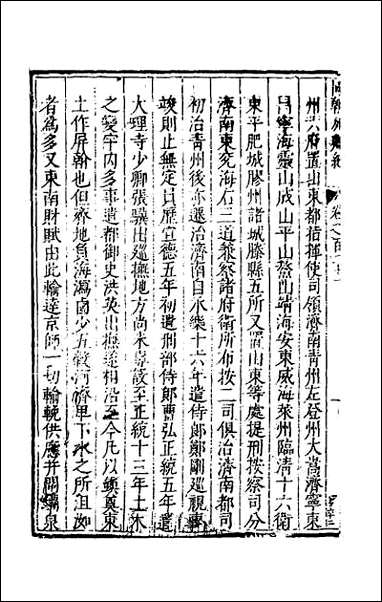 州六府置山東都指揮使司領濟南青州左登州大嵩濟寧東
昌寧海靈山成山平山鰲山靖海安東威海萊州臨清十六衛
東平肥城膠州諸城滕縣五所又置山東等處提刑按察司分
濟南東兖海右三道兼察諸府衛所布按二司俱治濟南都司
初治青州後亦遷治濟南自永樂十六年遣侍郎鄭剛巡視事
竣則止無定員歷宣德五年初遣刑部侍郎曹弘正統五年遣
大理寺少卿張驥出巡撫地方尚未專敇至正統十三年土木
之變宇內多事遣都御史洪英出撫遂相沿至今凡以綏奠東
土作屏翰也但齊地負海瀉鹵少五穀河濟里下水之所沮洳
者為多又東南財賦由此輸達京師一切輸輓供應并開濬泉